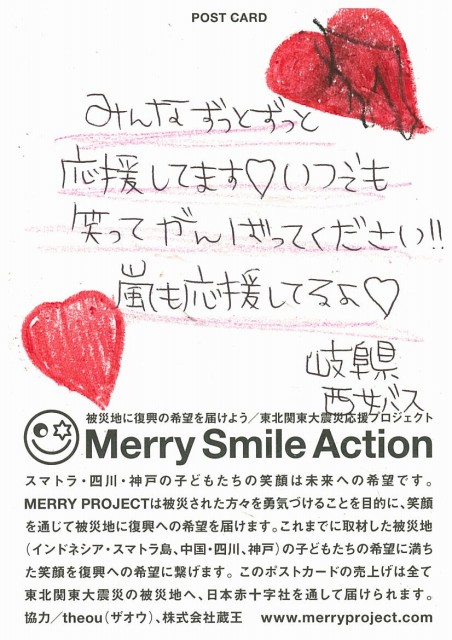 POST CARD
みんなずっとずっと
応援してます♡いつでも
笑ってがんばってください!!
嵐も応援してるよ♡
岐阜県
西女バス
被災地に復興の希望を届けよう／東北関東大震災応援プロジェクト
Merry Smile Action
スマトラ・四川・神戸の子どもたちの笑顔は未来への希望です。
MERRY PROJECTは被災された方々を勇気づけることを目的に、笑顔
を通じて被災地に復興への希望を届けます。これまでに取材した被災地
（インドネシア・スマトラ島、中国・四川、神戸）の子どもたちの希望に満ち
た笑顔を復興への希望に繋げます。このポストカードの売上げは全て
東北関東大震災の被災地へ、日本赤十字社を通して届けられます。
協力／theou（ザオウ）、株式会社蔵王 www.merryproject.com